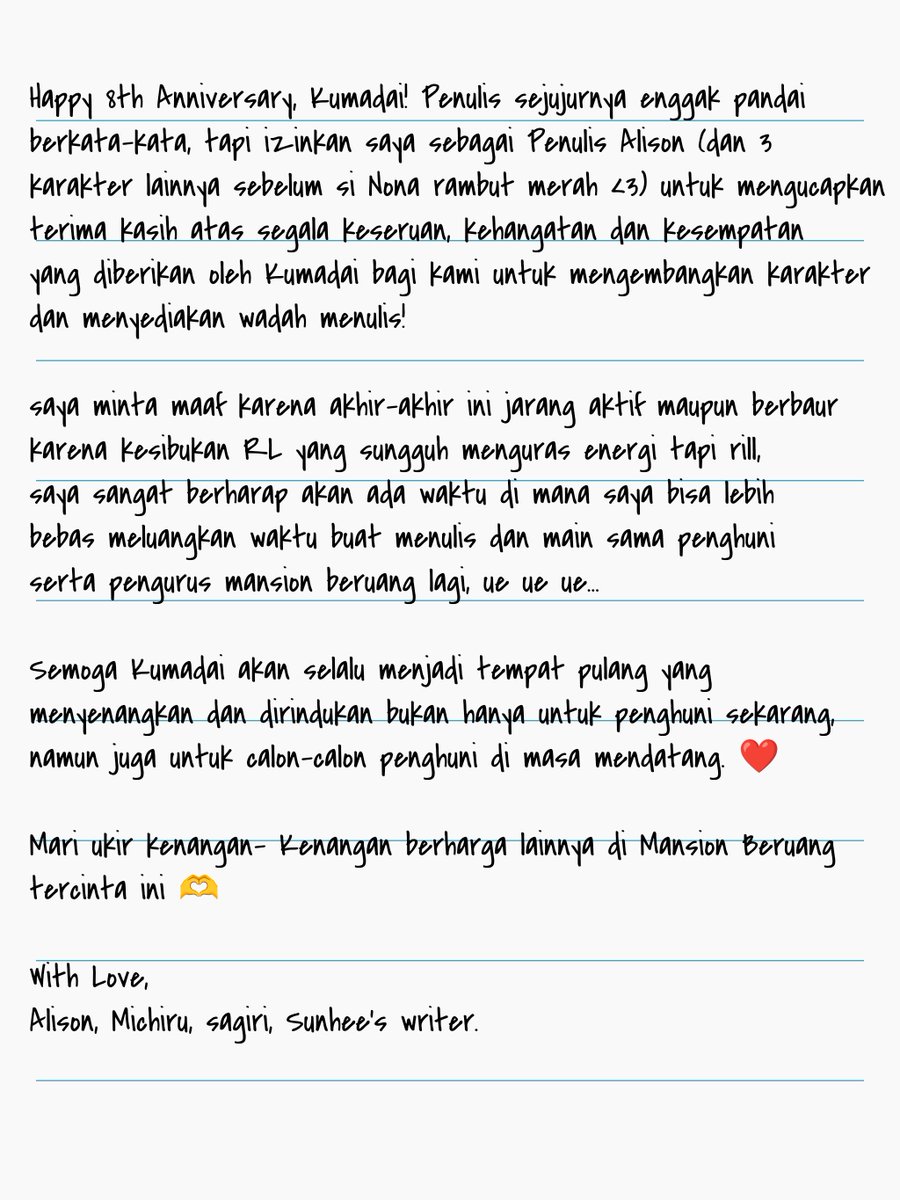 Happy 8th Anniversary, Kumadai! Penulis sejujurnya enggak pandai
berkata-kata, tapi izinkan saya sebagai Penulis Alison (dan 3
karakter lainnya sebelum si Nona rambut merah <3) untuk mengucapkan
terima kasih atas segala keseruan, kehangatan dan kesempatan
yang diberikan oleh Kumadai bagi kami untuk mengembangkan karakter
dan menyediakan wadah menulis!
saya minta maaf karena akhir-akhir ini jarang aktif maupun berbaur
karena kesibukan RL yang sungguh menguras energi tapi rill,
saya sangat berharap akan ada waktu di mana saya bisa lebih
bebas meluangkan waktu buat menulis dan main sama penghuni
serta pengurus mansion beruang lagi, ue ue ue...
Semoga Kumadai akan selalu menjadi tempat pulang yang
menyenangkan dan dirindukan bukan hanya untuk penghuni sekarang,
namun juga untuk calon-calon penghuni di masa mendatang. ❤️
Mari ukir kenangan- Kenangan berharga lainnya di Mansion Beruang
tercinta ini 🫶
With Love,
Alison, Michiru, sagiri, Sunhee's writer.